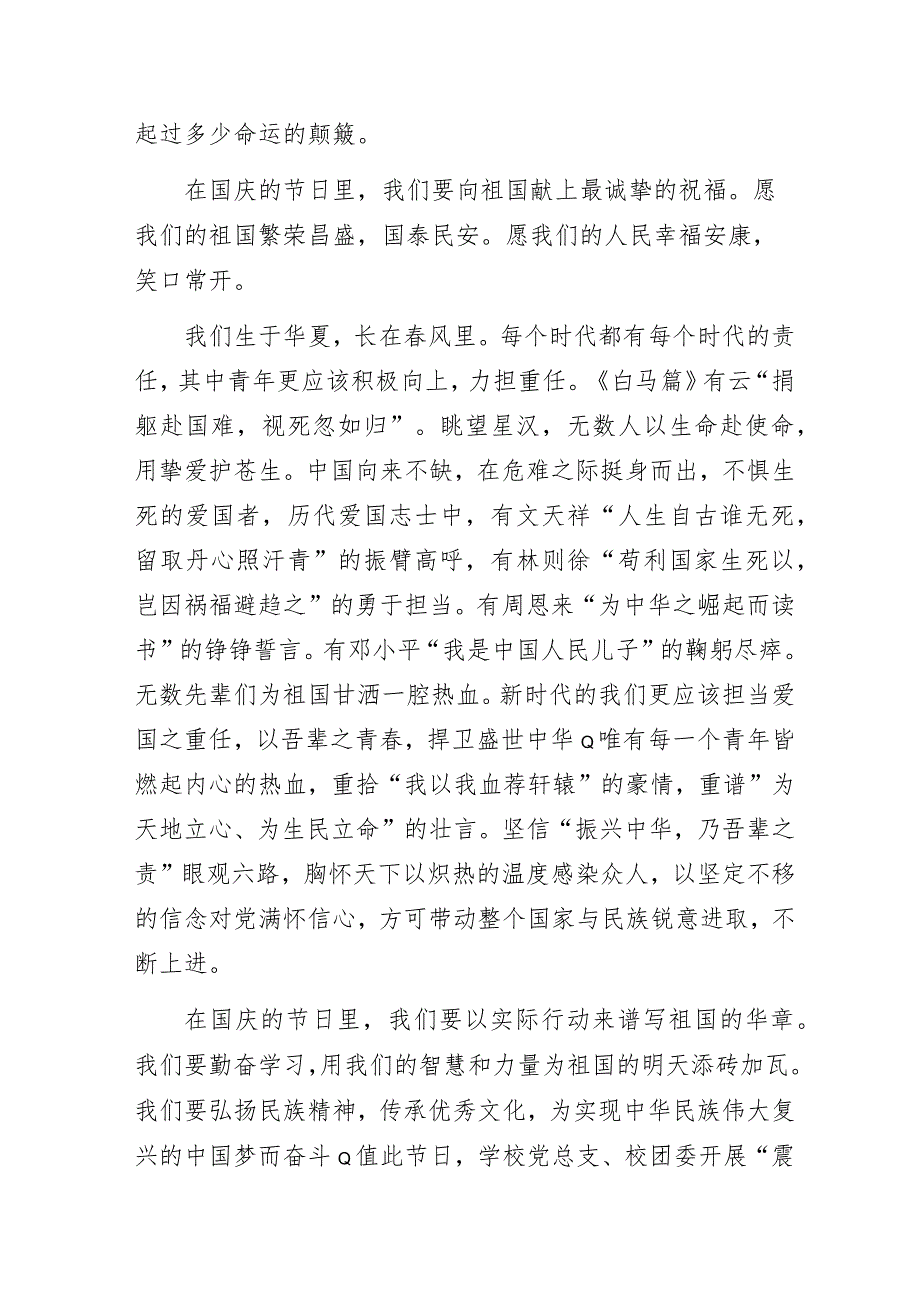 起过多少命运的颠簸。
在国庆的节日里，我们要向祖国献上最诚挚的祝福。愿
我们的祖国繁荣昌盛，国泰民安。愿我们的人民幸福安康，
笑口常开。
我们生于华夏，长在春风里。每个时代都有每个时代的责
任，其中青年更应该积极向上，力担重任。《白马篇》有云“捐
躯赴国难，视死忽如归”。眺望星汉，无数人以生命赴使命，
用挚爱护苍生。中国向来不缺，在危难之际挺身而出，不惧生
死的爱国者，历代爱国志士中，有文天祥“人生自古谁无死，
留取丹心照汗青”的振臂高呼，有林则徐“苟利国家生死以，
岂因祸福避趋之”的勇于担当。有周恩来“为中华之崛起而读
书”的铮铮誓言。有邓小平“我是中国人民儿子”的鞠躬尽瘁。
无数先辈们为祖国甘洒一腔热血。新时代的我们更应该担当爱
国之重任，以吾辈之青春，捍卫盛世中华Q唯有每一个青年皆
燃起内心的热血，重拾“我以我血荐轩辕”的豪情，重谱”为
天地立心、为生民立命”的壮言。坚信“振兴中华，乃吾辈之
责”眼观六路，胸怀天下以炽热的温度感染众人，以坚定不移
的信念对党满怀信心，方可带动整个国家与民族锐意进取，不
断上进。
在国庆的节日里，我们要以实际行动来谱写祖国的华章。
我们要勤奋学习，用我们的智慧和力量为祖国的明天添砖加瓦。
我们要弘扬民族精神，传承优秀文化，为实现中华民族伟大复
兴的中国梦而奋斗Q值此节日，学校党总支、校团委开展“震